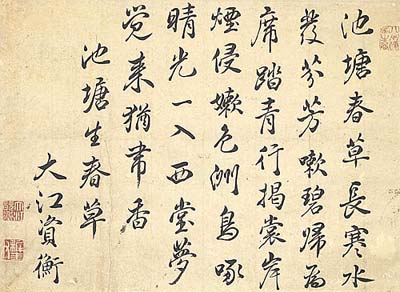 池塘春草長寒水
發芬芳嫩碧歸為
席踏青行揭裳岸
煙侵嫩色洲鳥啄
晴光一入西堂夢
覺来猶帯香
池塘生春草
大江資衡